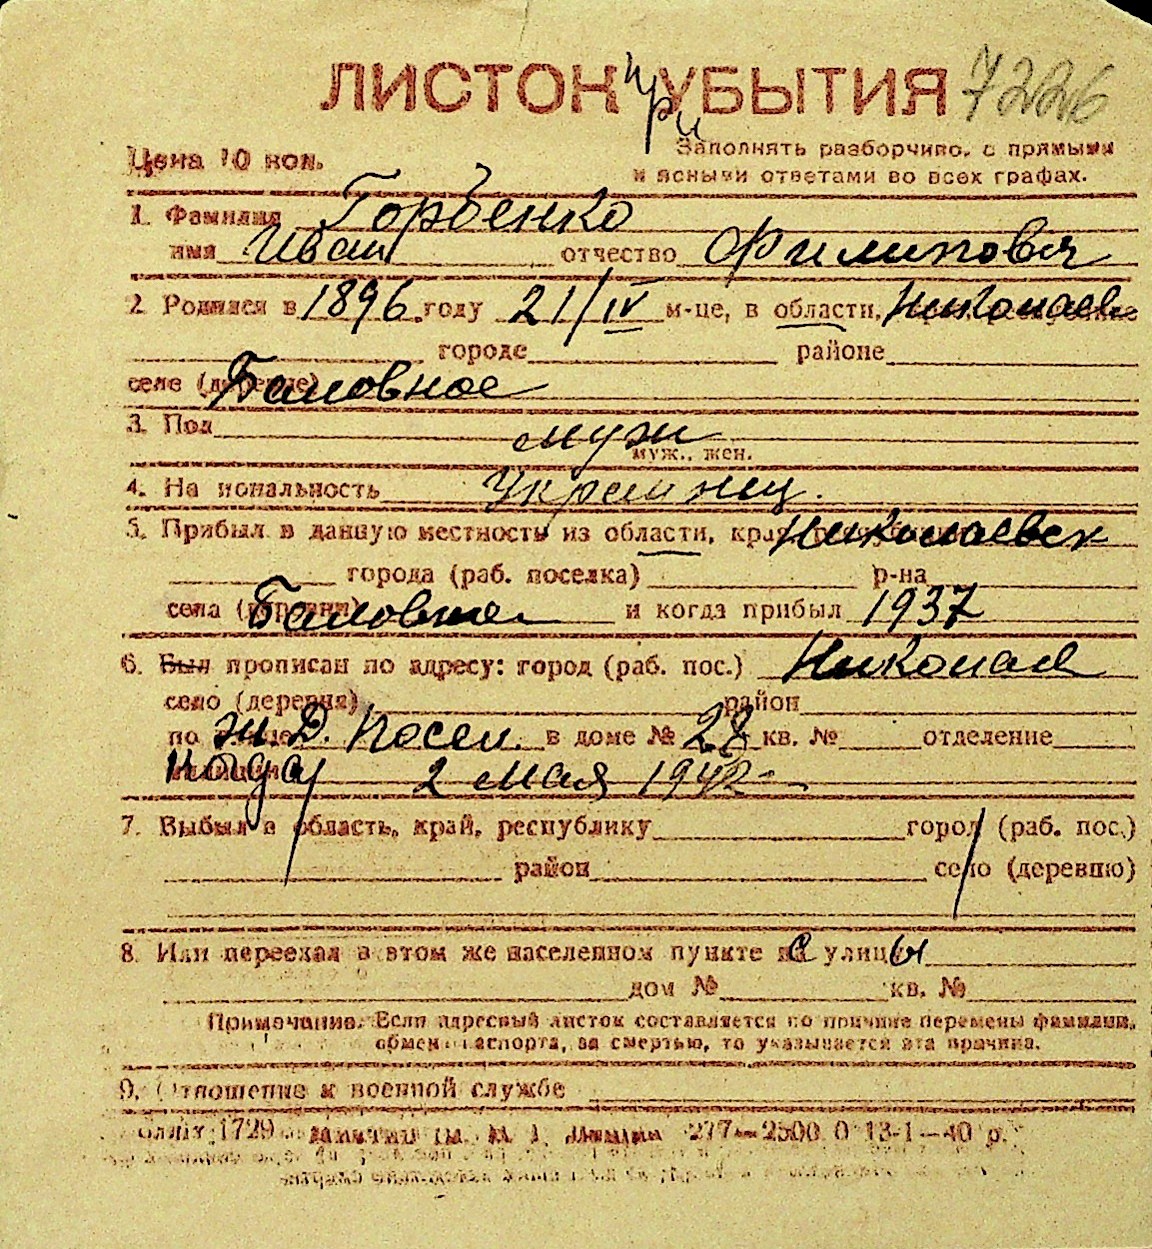 ЛИСТОК УБЫТИЯ при 7226
Цена 10 коп.
Заполнять разборчиво, с прямыми
и ясными ответами во всех графах.
1. Фамилия Горбенко
имя Иван отчество Филипович
2. Родился в 1896 году 21/IV м-це, в области, Николаев
городе районе
селе (деревне) Баловное
3. Пол муж
муж., жен.
4. Национальность Украинец.
5. Прибыл в данную местность из области, края, Николаевск
города (раб. поселка) р-на
села (деревни) Баловное и когда прибыл 1937
6. Был прописан по адресу: город (раб. пос.) Николаев
село (деревня) район
по улице Ж.Д. Посел. в доме № 28 кв. № отделение
милиции 2 мая 1942
7. Выбыл в область, край, республику город (раб. пос.)
район село (деревню)
8. Или переехал в этом же населенном пункте с улицы
дом № кв. №
Примечание. Если адресный листок составляется по причине перемены фамилии,
обмен паспорта, за смертью, то указывается эта причина.
9. Отношение к военной службе
1729 277—2500 0 13-1—40 р.